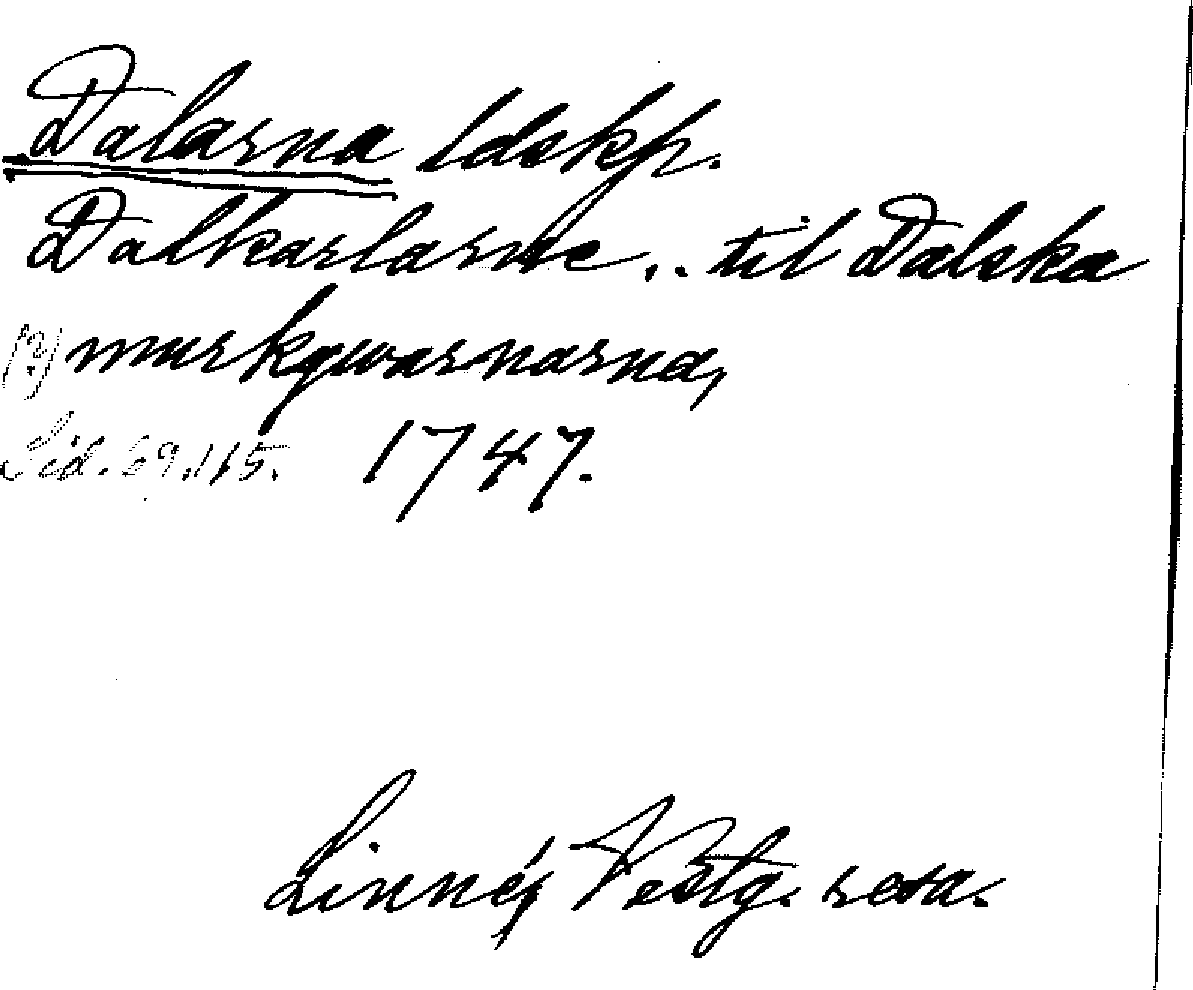 Dalarna ldskp.
Dalkarlarne .. til Dalska
(?) murkqwarnarna,
Sid. 69, 115. 1747.
Linné, Vestg. resa.